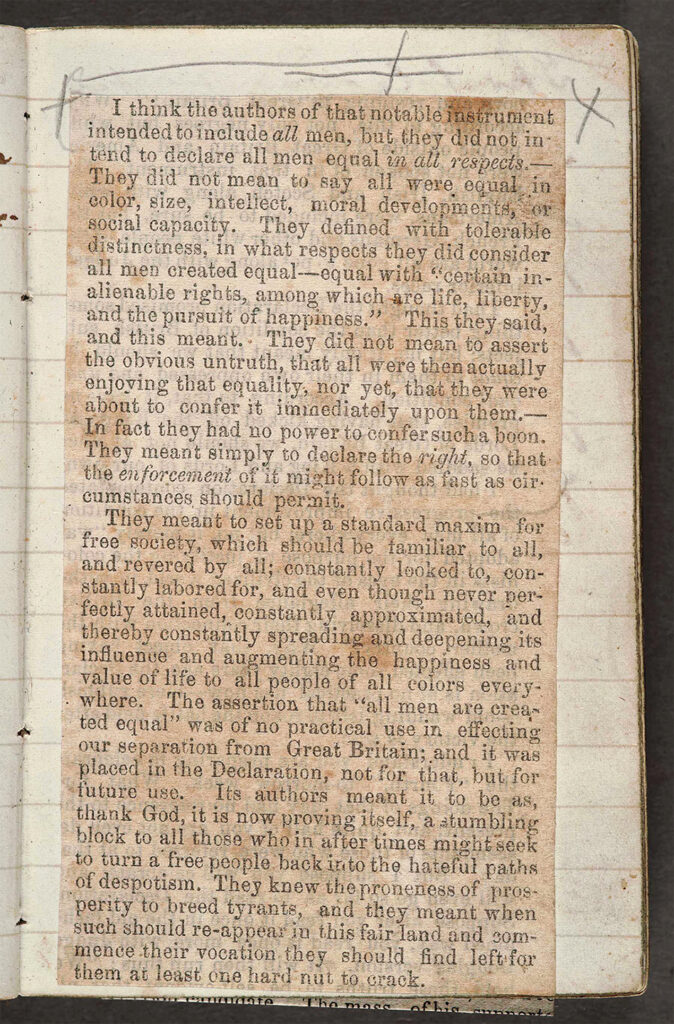 I think the authors of that notable instrument
intended to include all men, but they did not in-
tend to declare all men equal in all respects.—
They did not mean to say all were equal in
color, size, intellect, moral developments, or
social capacity. They defined with tolerable
distinctness, in what respects they did consider
all men created equal—equal with "certain in-
alienable rights, among which are life, liberty,
and the pursuit of happiness." This they said,
and this meant. They did not mean to assert
the obvious untruth, that all were then actually
enjoying that equality, nor yet, that they were
about to confer it immediately upon them.—
In fact they had no power to confer such a boon.
They meant simply to declare the right, so that
the enforcement of it might follow as fast as cir-
cumstances should permit.
They meant to set up a standard maxim for
free society, which should be familiar to all,
and revered by all; constantly looked to, con-
stantly labored for, and even though never per-
fectly attained, constantly approximated, and
thereby constantly spreading and deepening its
influence and augmenting the happiness and
value of life to all people of all colors every-
where. The assertion that "all men are crea-
ted equal" was of no practical use in effecting
our separation from Great Britain; and it was
placed in the Declaration, not for that, but for
future use. Its authors meant it to be as,
thank God, it is now proving itself, a stumbling
block to all those who in after times might seek
to turn a free people back into the hateful paths
of despotism. They knew the proneness of pros-
perity to breed tyrants, and they meant when
such should re-appear in this fair land and com-
mence their vocation they should find left for
them at least one hard nut to crack.
candidate. The mass of his